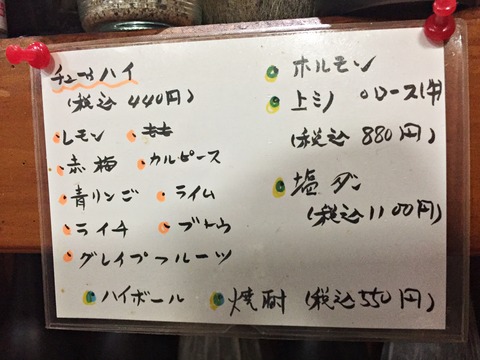 チューハイ
(税込 440円)
レモン
もも
赤梅
カルピース
青リンゴ
ライム
ライチ
ブドウ
グレイプフルーツ
ハイボール
焼酎 (税込550円)
ホルモン
上ミノ ロース(牛)
(税込 880円)
塩タン
(税込1100円)